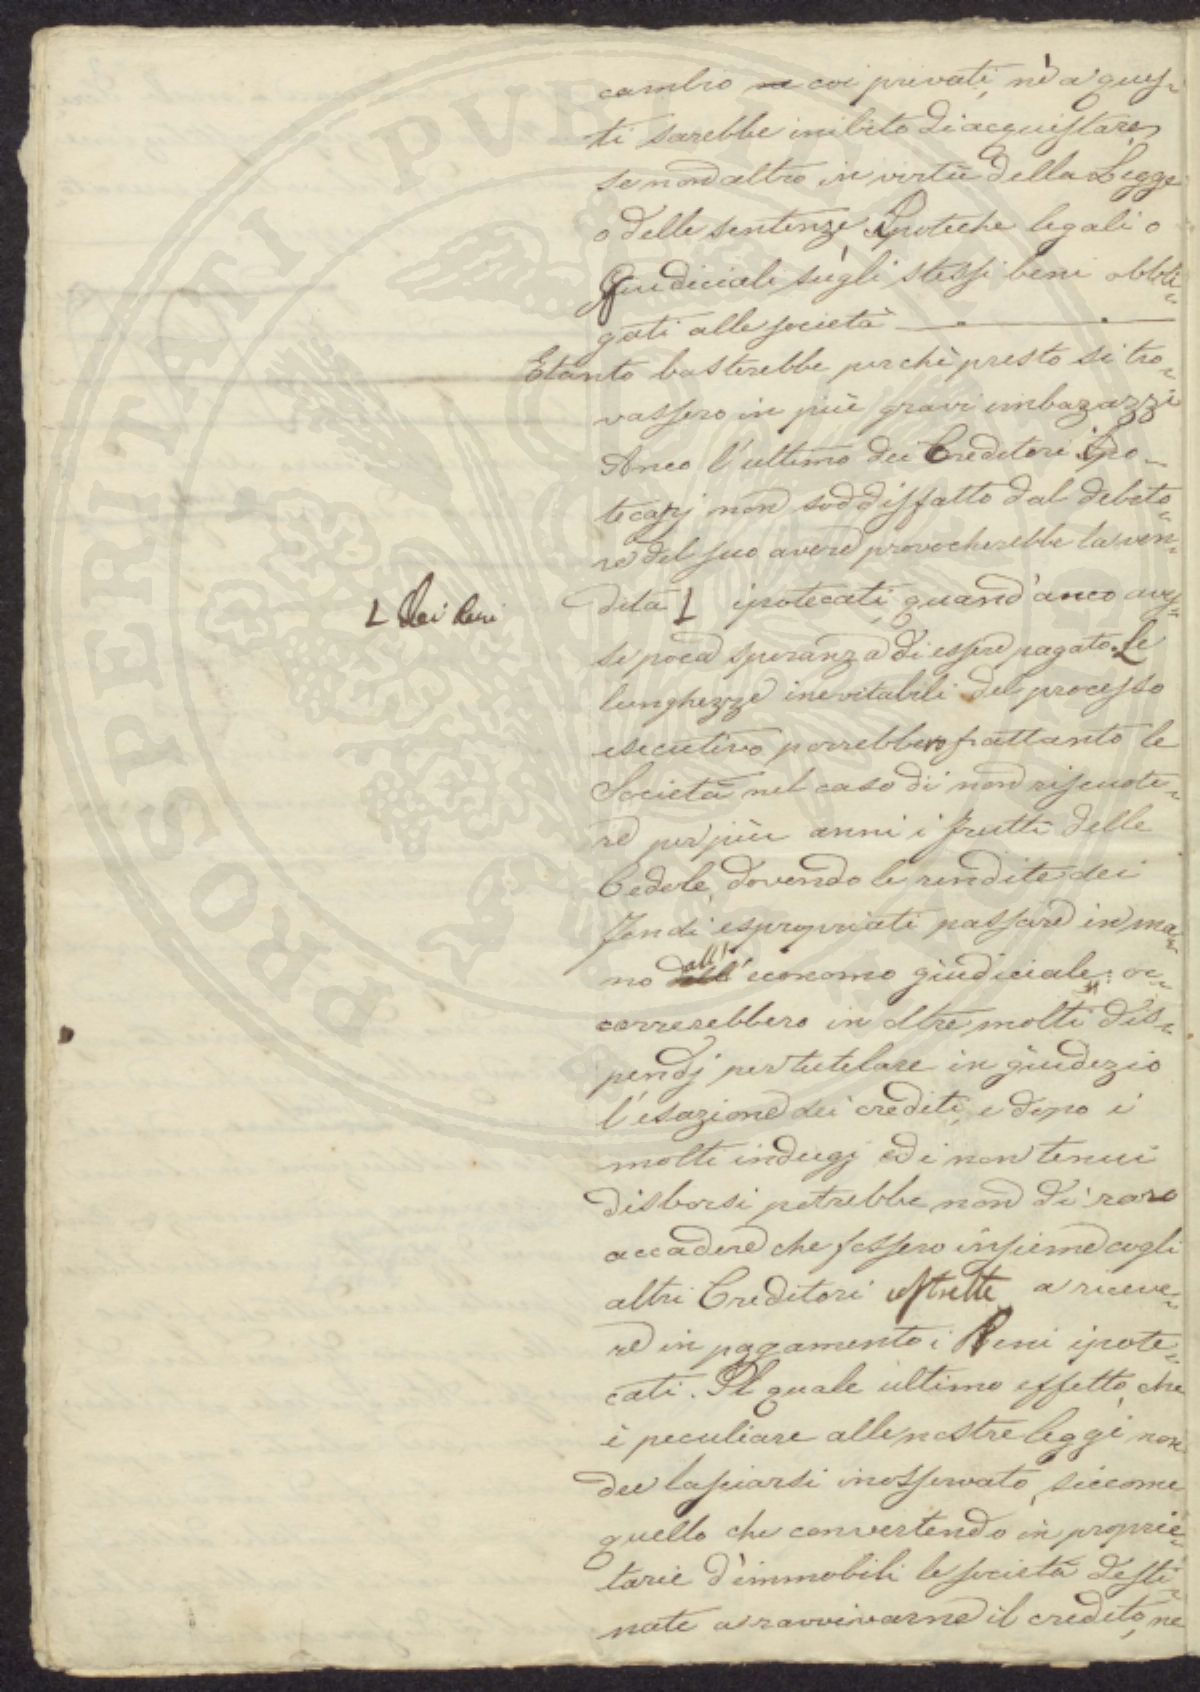 cambio coi privati, nè a ques-
ti sarebbe inibito di acquistare,
se non altro in virtù della Legge
o delle sentenze, Ipoteche legali o
Giudiciali sugli stessi beni obbli-
gati alle società
E tanto basterebbe perchè presto si tro-
vassero in più gravi imbarazzi
Anco l'ultimo dei Creditori Ipo-
tecarj non soddisfatto dal debito-
re del suo avere provocherebbe la ven-
dita L ipotecati, quand'anco aves-
L dei beni
se poca speranza di essere pagato. Le
lunghezze inevitabili del processo
esecutivo porrebbero frattanto le
Società nel caso di non riscuote-
re per più anni i frutti delle
Cedole, dovendo le rendite dei
fondi espropriati passare in ma-
no all'economo giudiciale: oc-
correrebbero in oltre molti dis-
pendj per tutelare in giudizio
l'esazione dei crediti, e dopo i
molti indugj ed i non tenui
disborsi potrebbe non di raro
accadere che fossero insieme cogli
altri Creditori costrette a riceve-
re in pagamento i Beni ipote-
cati. Il quale ultimo effetto, che
è peculiare alle nostre leggi non
dee lasciarsi inosservato, siccome
quello che convertendo in proprie-
tarie d'immobili le società desti-
nate a ravvivarne il credito, ne
PROSPERITATI PUBLICAE